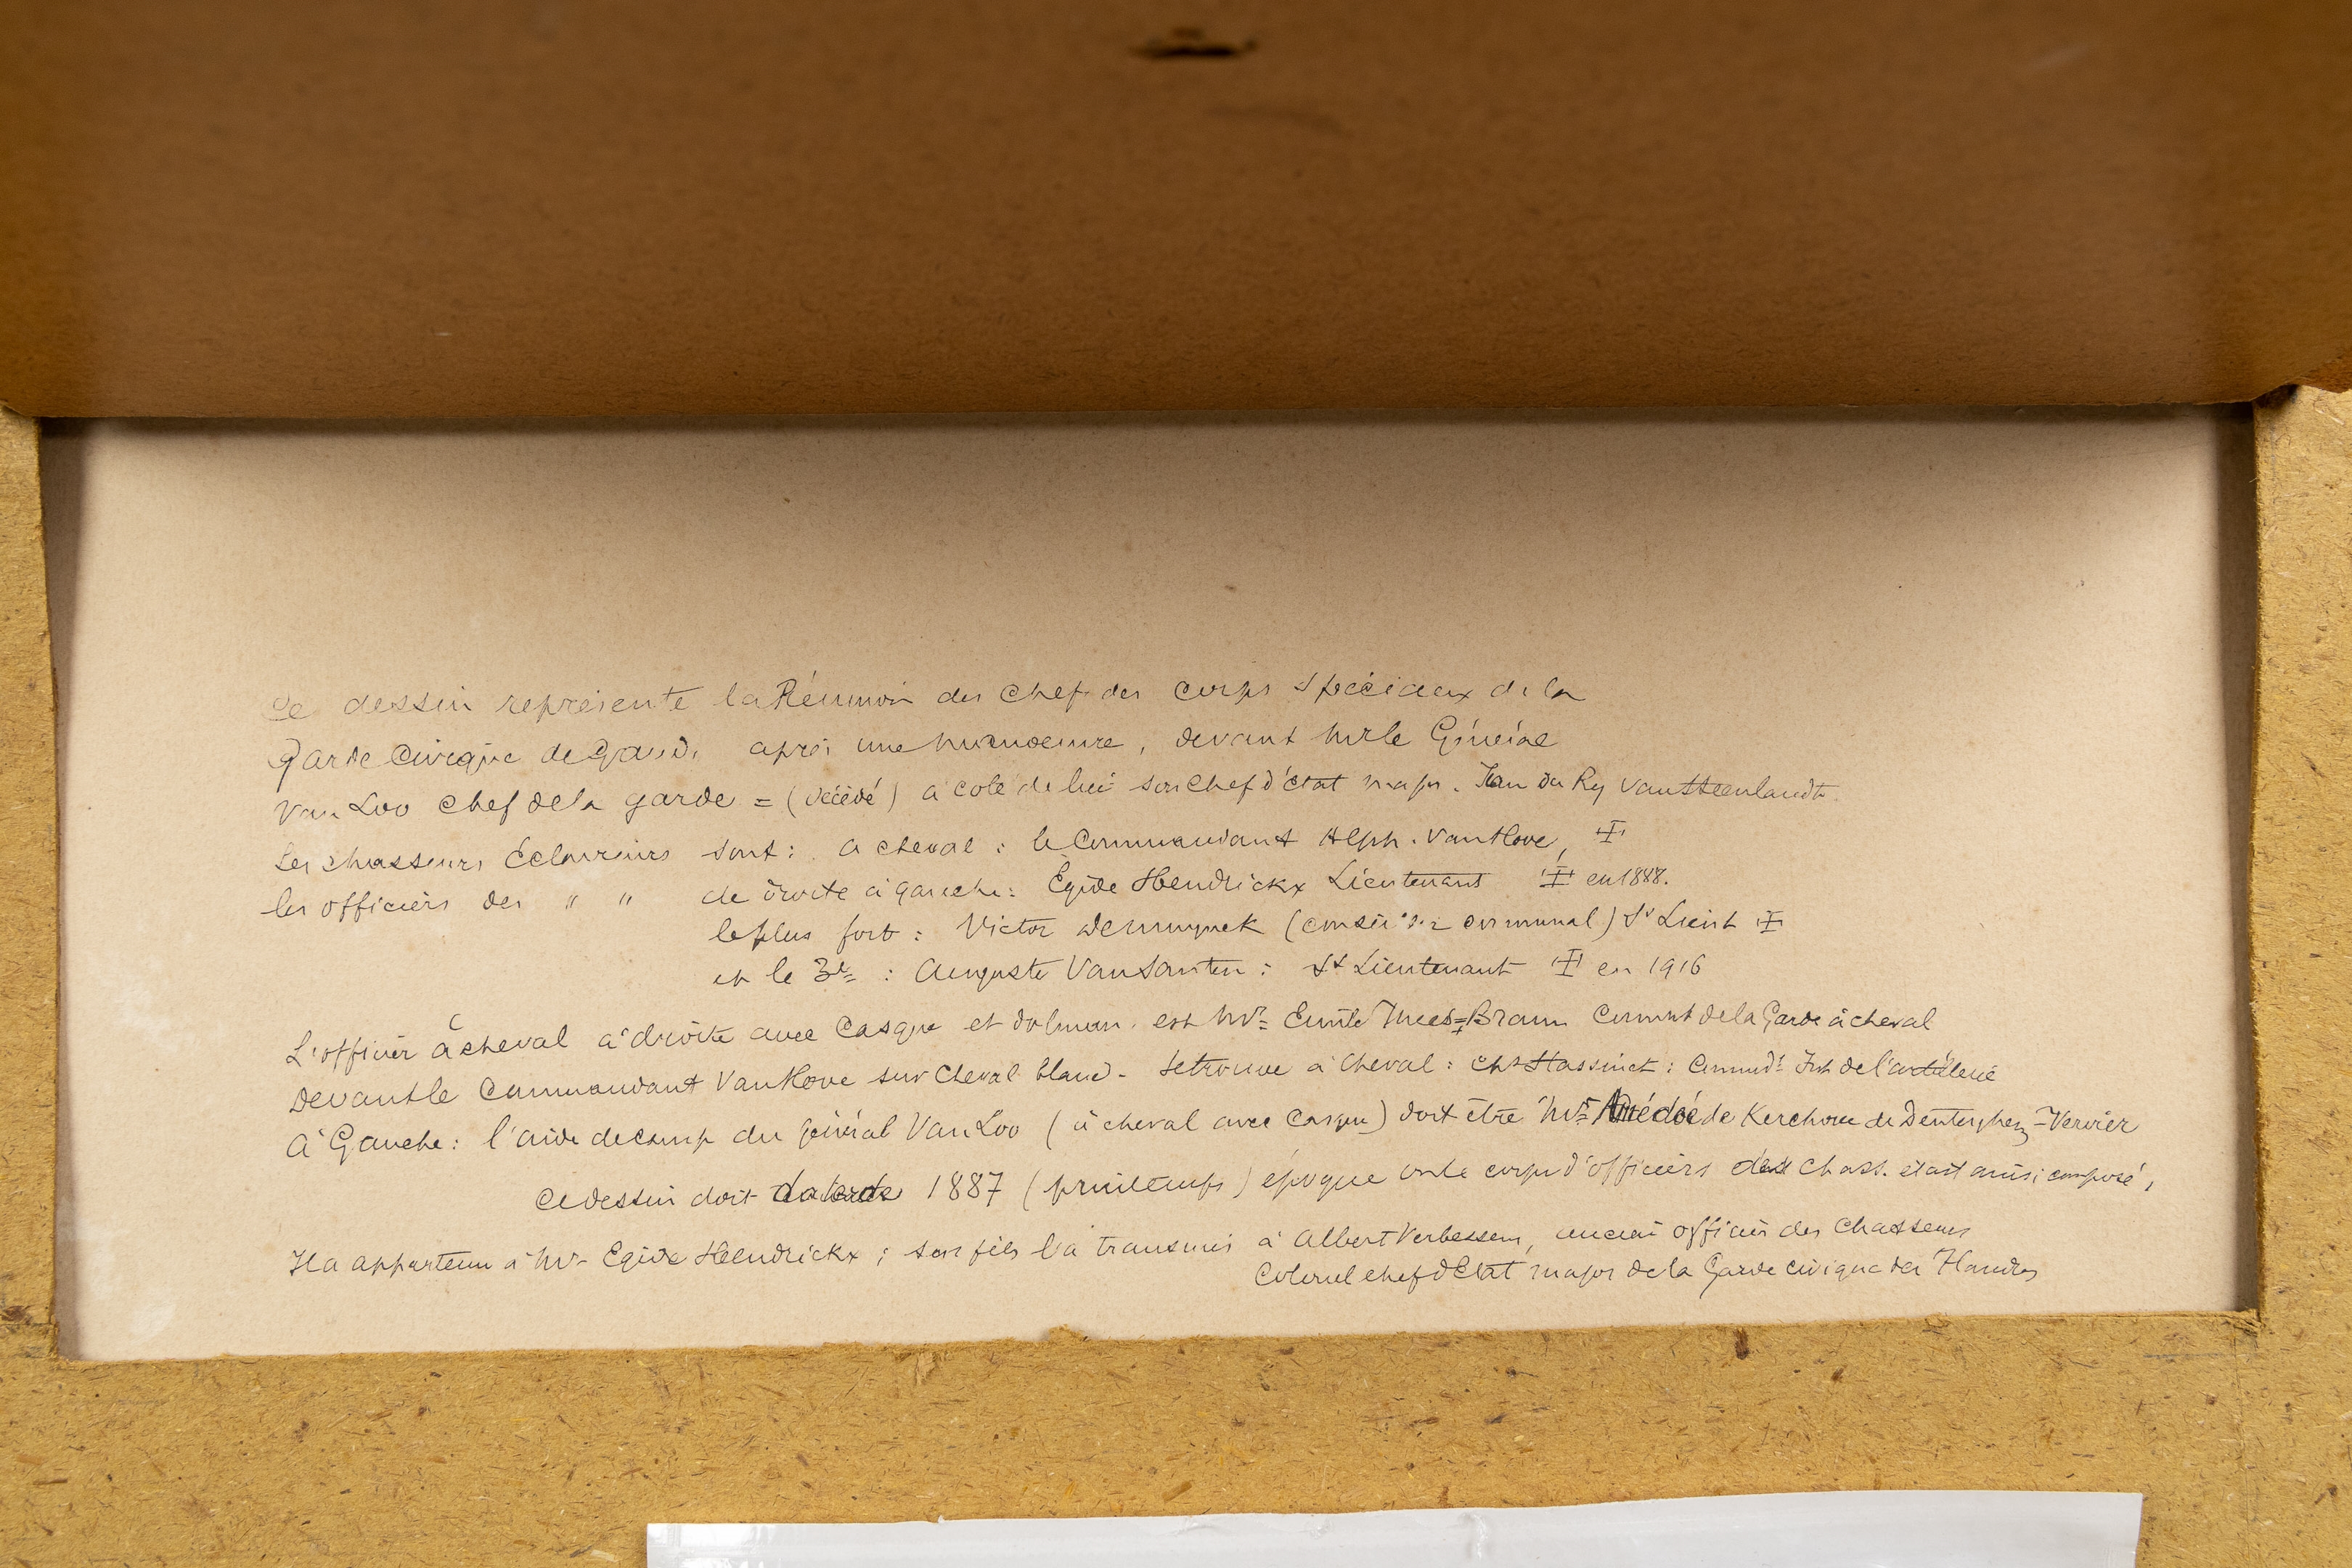 Ce dessin représente la Réunion des chefs des corps spéciaux de la
Garde Civique de Gand, après une manoeuvre, devant Mr le Général
Van Loo chef de la garde = (décédé) a coté de lui son chef d'état major. Jean du Ry Van Steenlandt
Les chasseurs Éclaireurs sont: a cheval: le Commandant Alph. Van Hove, ✝
les officiers des " " de droite à gauche: Egide Hendrickx Lieutenant ✝ en 1888.
le plus fort: Victor (conseiller communal) St Lieut ✝
et le 3e: Auguste Van Santen: St Lieutenant ✝ en 1916
L'officier à cheval a droite avec Casque et dolman. est Mr Emile Braun Commt de la Garde à cheval
Devant le Commandant Van Hove sur Cheval blanc - se trouve à cheval: de l'artillerie
A Gauche: l'aide de camp du général Van Loo (à cheval avec Casque) doit être Mr Amédée de Kerchove de Denterghem - Vervier
Ce dessin doit dater de 1887 (printemps) époque où le corps d'officiers des Chass. était ainsi composé,
Il a appartenu à Mr Egide Hendrickx; son fils l'a transmis à Albert Verbessem, ancien officier des Chasseurs
Colonel chef d'Etat major de la Garde civique des Flandres